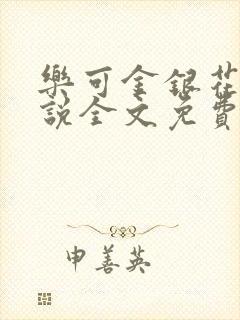 樂可金銀花
說全文免費
申善英